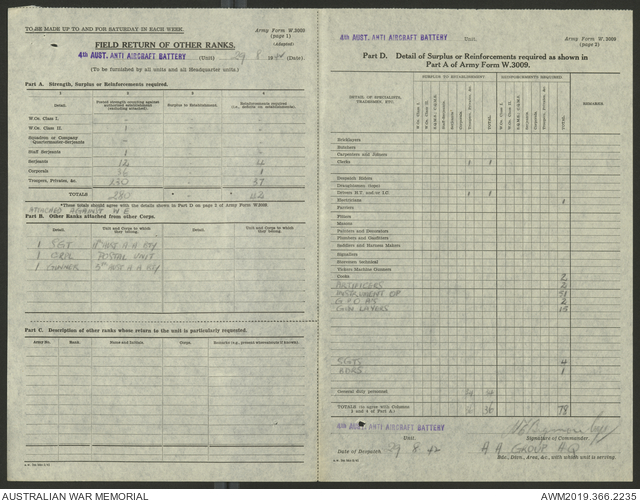 TO BE MADE UP TO AND FOR SATURDAY IN EACH WEEK.
Army Form W.3009
(page 1)
(Adapted)
FIELD RETURN OF OTHER RANKS.
4th AUST. ANTI AIRCRAFT BATTERY (Unit) 29 8 1942 (Date)
(To be furnished by all units and all Headquarter units.)
Part A. Strength, Surplus or Reinforcements required.
1 2 3 4
Detail.
Surplus to Establishment.
Reinforcements required
W.Os. Class I.
W.Os. Class II. 1
Squadron or Company
Quartermaster-Serjeants
Staff Serjeants 1
Serjeants 12 4
Corporals 36 1
Troopers, Privates, &c. 230 37
TOTALS 280
*These totals should agree with the details shown in Part D on page 2 of Army Form W.3009
ATTACHED AGAINST W E
Part B. Other Ranks attached from other Corps.
Detail. Unit and Corps to which they may belong. Detail. Unit and Corps to which they may belong.
1 SGT AUST A A BTY
1 CRPL POSTAL UNIT
1 GUNNER AUST A A BTY
Part C. Description of other ranks whose return to the unit is particularly requested.
Army No. Rank. Name and Initials Corps. Remarks (e.g., present whereabouts if known).
4th AUST. ANTI AIRCRAFT BATTERY Unit.
Army Form W.3009
(page 2)
Part D. Detail of Surplus or Reinforcements required as shown in
Part A of Army Form W.3009.
SURPLUS TO ESTABLISHMENT. REINFORCEMENTS REQUIRED.
DETAIL OF SPECIALISTS, TRADESMEN, ETC.
W.Os. Class I. W.Os. Class II. Staff-Serjeants Serjeants Corporals TOTAL. TOTAL. REMARKS.
Bricklayers
Butchers
Carpenters and Joiners
Clerks 1 1
Despatch Riders
Draughtsmen
Drivers M.T. and/or I.C. 1 1
Electricians 1
Farriers
Fitters
Masons
Painters and Decorators
Plumbers and Gasfitters
Saddlers and Harness Makers
Signallers
Storemen technical
Vickers Machine Gunners
Cooks 2
ARTIFICERS 2
INSTRUMENT OP 51
2
GUN LAYERS 15
SGTS 4
BDRS 1
General duty personnel 34 34
TOTALS (to agree with Columns
3 and 4 of Part A.) 36 36 78
4th AUST. ANTI AIRCRAFT BATTERY
Unit.
Signature of Commander.
Date of Despatch 29 8 42
A A GROUP H.Q
Bde., Divn., Area, &c., with which unit is serving.
AUSTRALIAN WAR MEMORIAL
AWM2019.366.2235